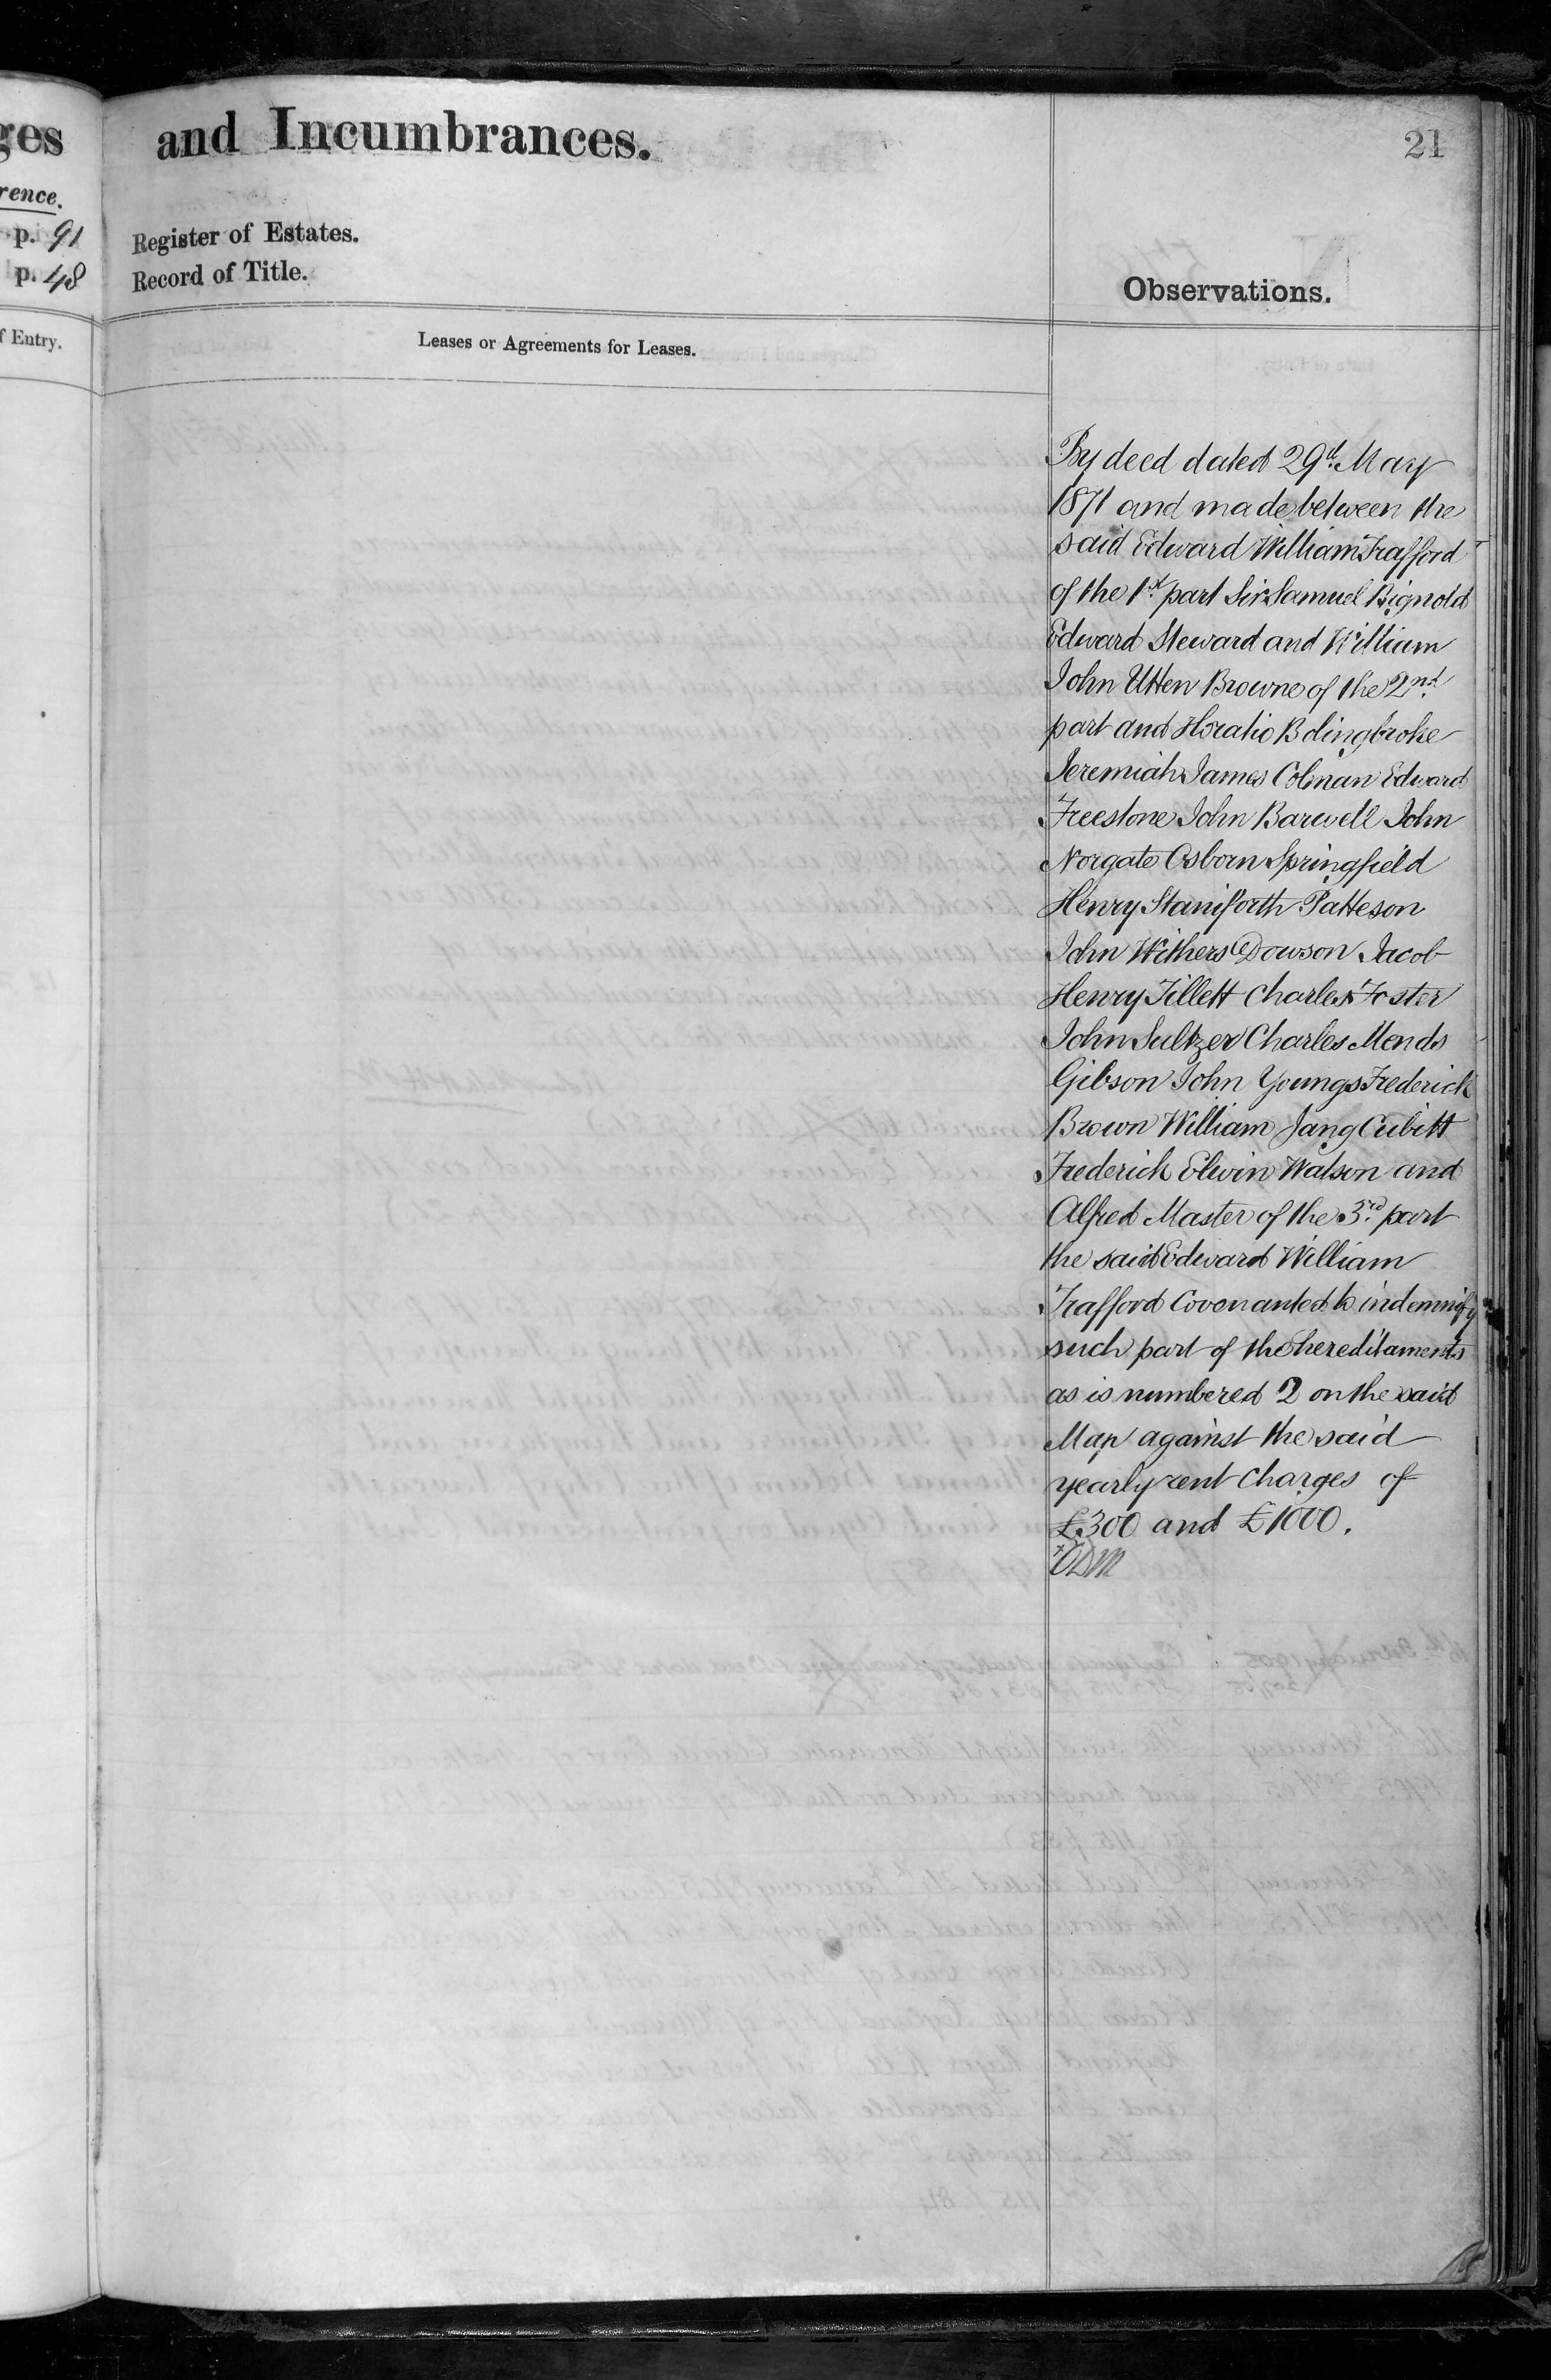 ges
rence.
p. 91
p. 48
f Entry.
and Incumbrances.
21
Register of Estates.
Record of Title.
Observations.
Leases or Agreements for Leases.
By deed dated 29th. May
1871 and made between the
said Edward William Trafford
of the 1st. part Sir Samuel Bignold
Edward Steward and William
John Utten Browne of the 2nd.
part and Horatio Bolingbroke
Jeremiah James Colman Edward
Freestone John Barwell John
Norgate Osborn Springfield
Henry Staniforth Patteson
John Withers Dowson Jacob
Henry Tillett Charles Foster
John Sultzer Charles Mends
Gibson John Youngs Frederick
Brown William Jang Cubitt
Frederick Elwin Watson and
Alfred Master of the 3rd. part
the said Edward William
Trafford Covenanted to indemnify
such part of the hereditaments
as is numbered 2 on the said
Map against the said
yearly rent charges of
£300 and £1000.